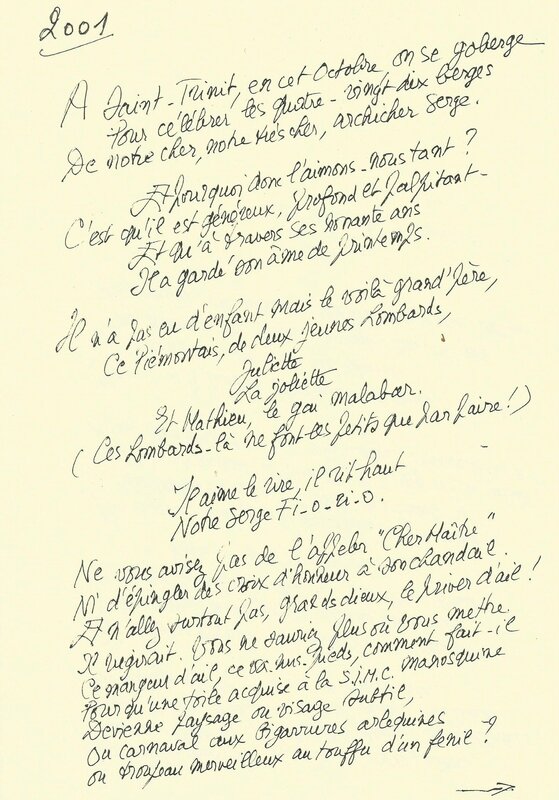 2001
A Saint-Trinit, en cet Octobre on se goberge
Pour célébrer les quatre-vingt dix berges
De notre cher, notre très cher, archicher Serge.
Et pourquoi donc l'aimons-nous tant ?
C'est qu'il est généreux, profond et palpitant-
Et qu'à travers ses nonante ans
Il a gardé son âme de printemps.
Il n'a pas eu d'enfant mais le voilà grand'père,
Ce Piémontais, de deux jeunes Lombards,
Juliette
La joliette
Et Mathieu, le gai malabar.
(Ces Lombards-là ne font les petits que par paire !)
Il aime le rire, il rit haut
Notre Serge Fi-o-ri-o.
Ne vous avisez pas de l'appeler "Cher Maître"
Ni d'épingler des croix d'honneur à son chandail.
Et n'allez surtout pas, grands dieux, le priver d'ail !
Il rugirait. Vous ne sauriez plus où vous mettre.
Ce mangeur d'ail, ce va-nus-pieds, comment fait-il
Pour qu'une toile acquise à la S.I.M.C. manosquine
Devienne paysage ou visage subtil,
Ou carnaval aux bigarrures arlequines
ou troupeau merveilleux au touffu d'un fenil ?